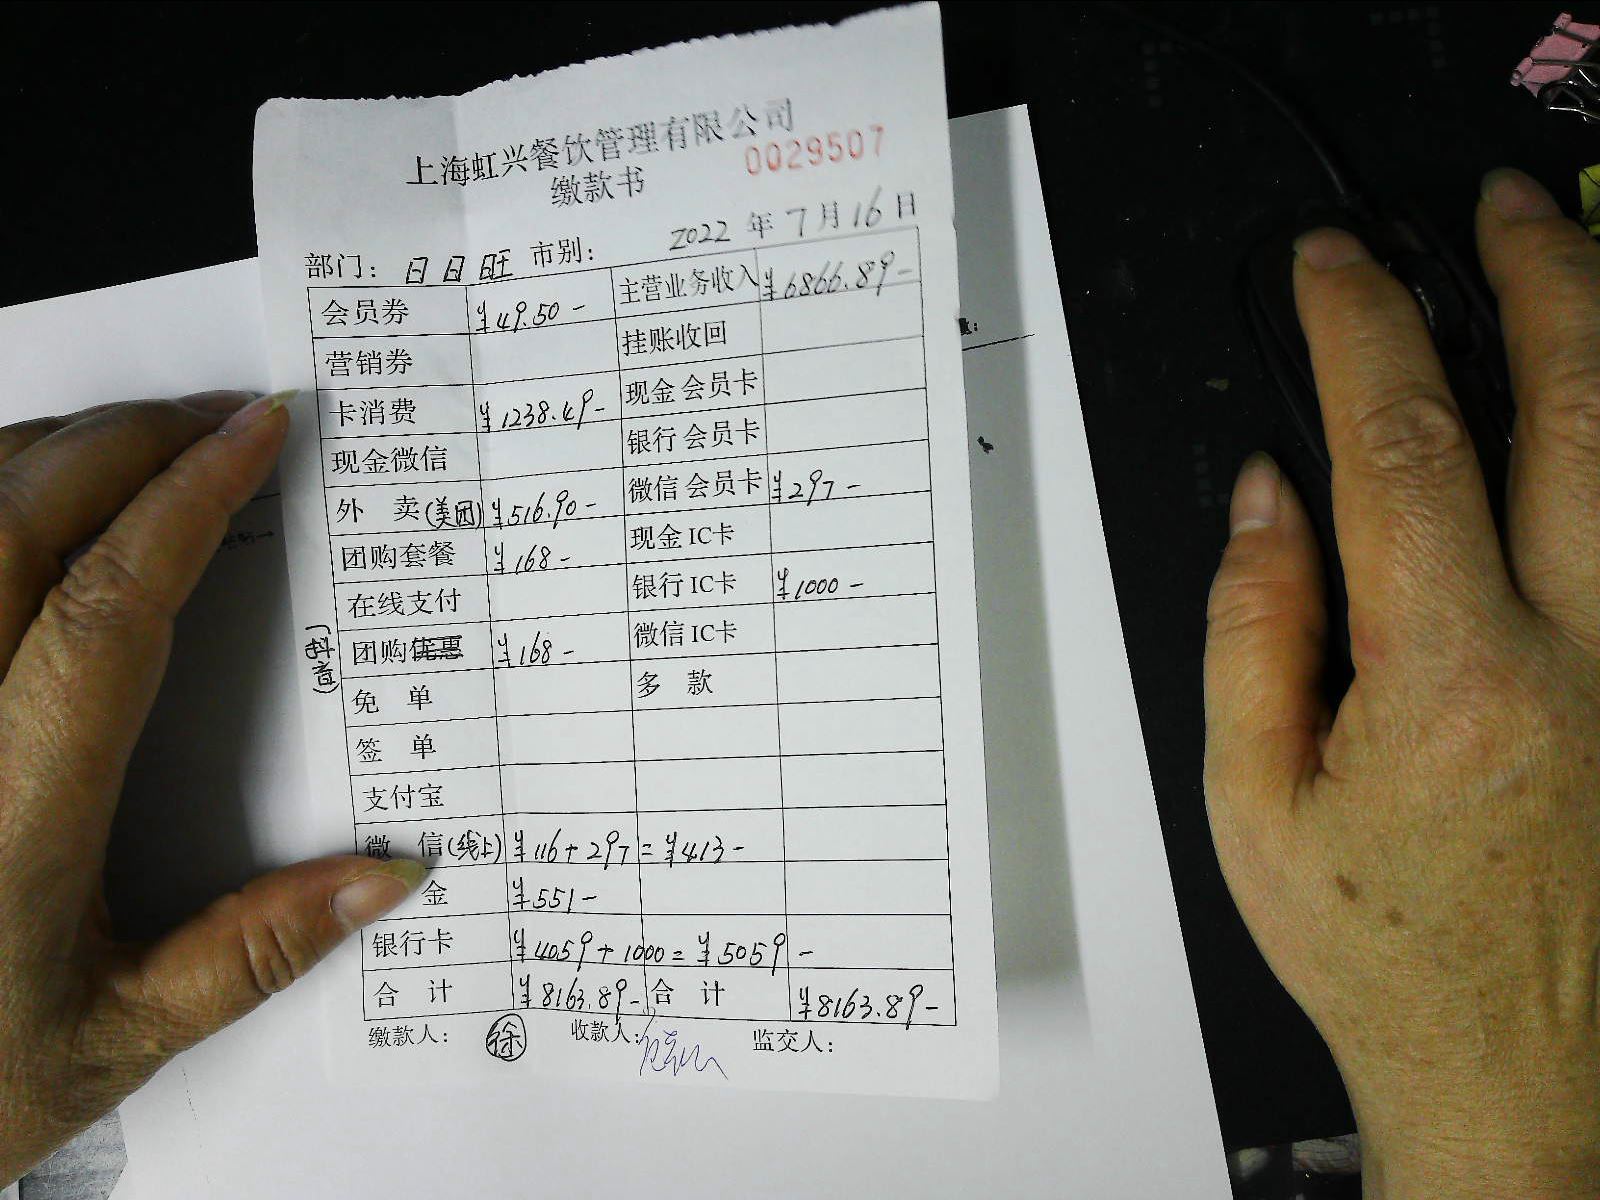 上海虹兴餐饮管理有限公司
缴款书
0029507
2022 年 7 月 16 日
部门： 日日旺 市别：
会员券 ¥49.50- 主营业务收入 ¥6866.89-
营销券 挂账收回
卡消费 ¥1238.49- 现金会员卡
现金微信 银行会员卡
外 卖(美团) ¥516.90- 微信会员卡 ¥297-
团购套餐 ¥168- 现金IC卡
在线支付 银行IC卡 ¥1000-
(抖音) 团购优惠 ¥168- 微信IC卡
免 单 多 款
签 单
支付宝
微 信(线上) ¥116+297=¥413-
金 ¥551-
银行卡 ¥4059+1000=¥5059-
合 计 ¥8163.89- 合 计 ¥8163.89-
缴款人： 徐 收款人： 监交人：